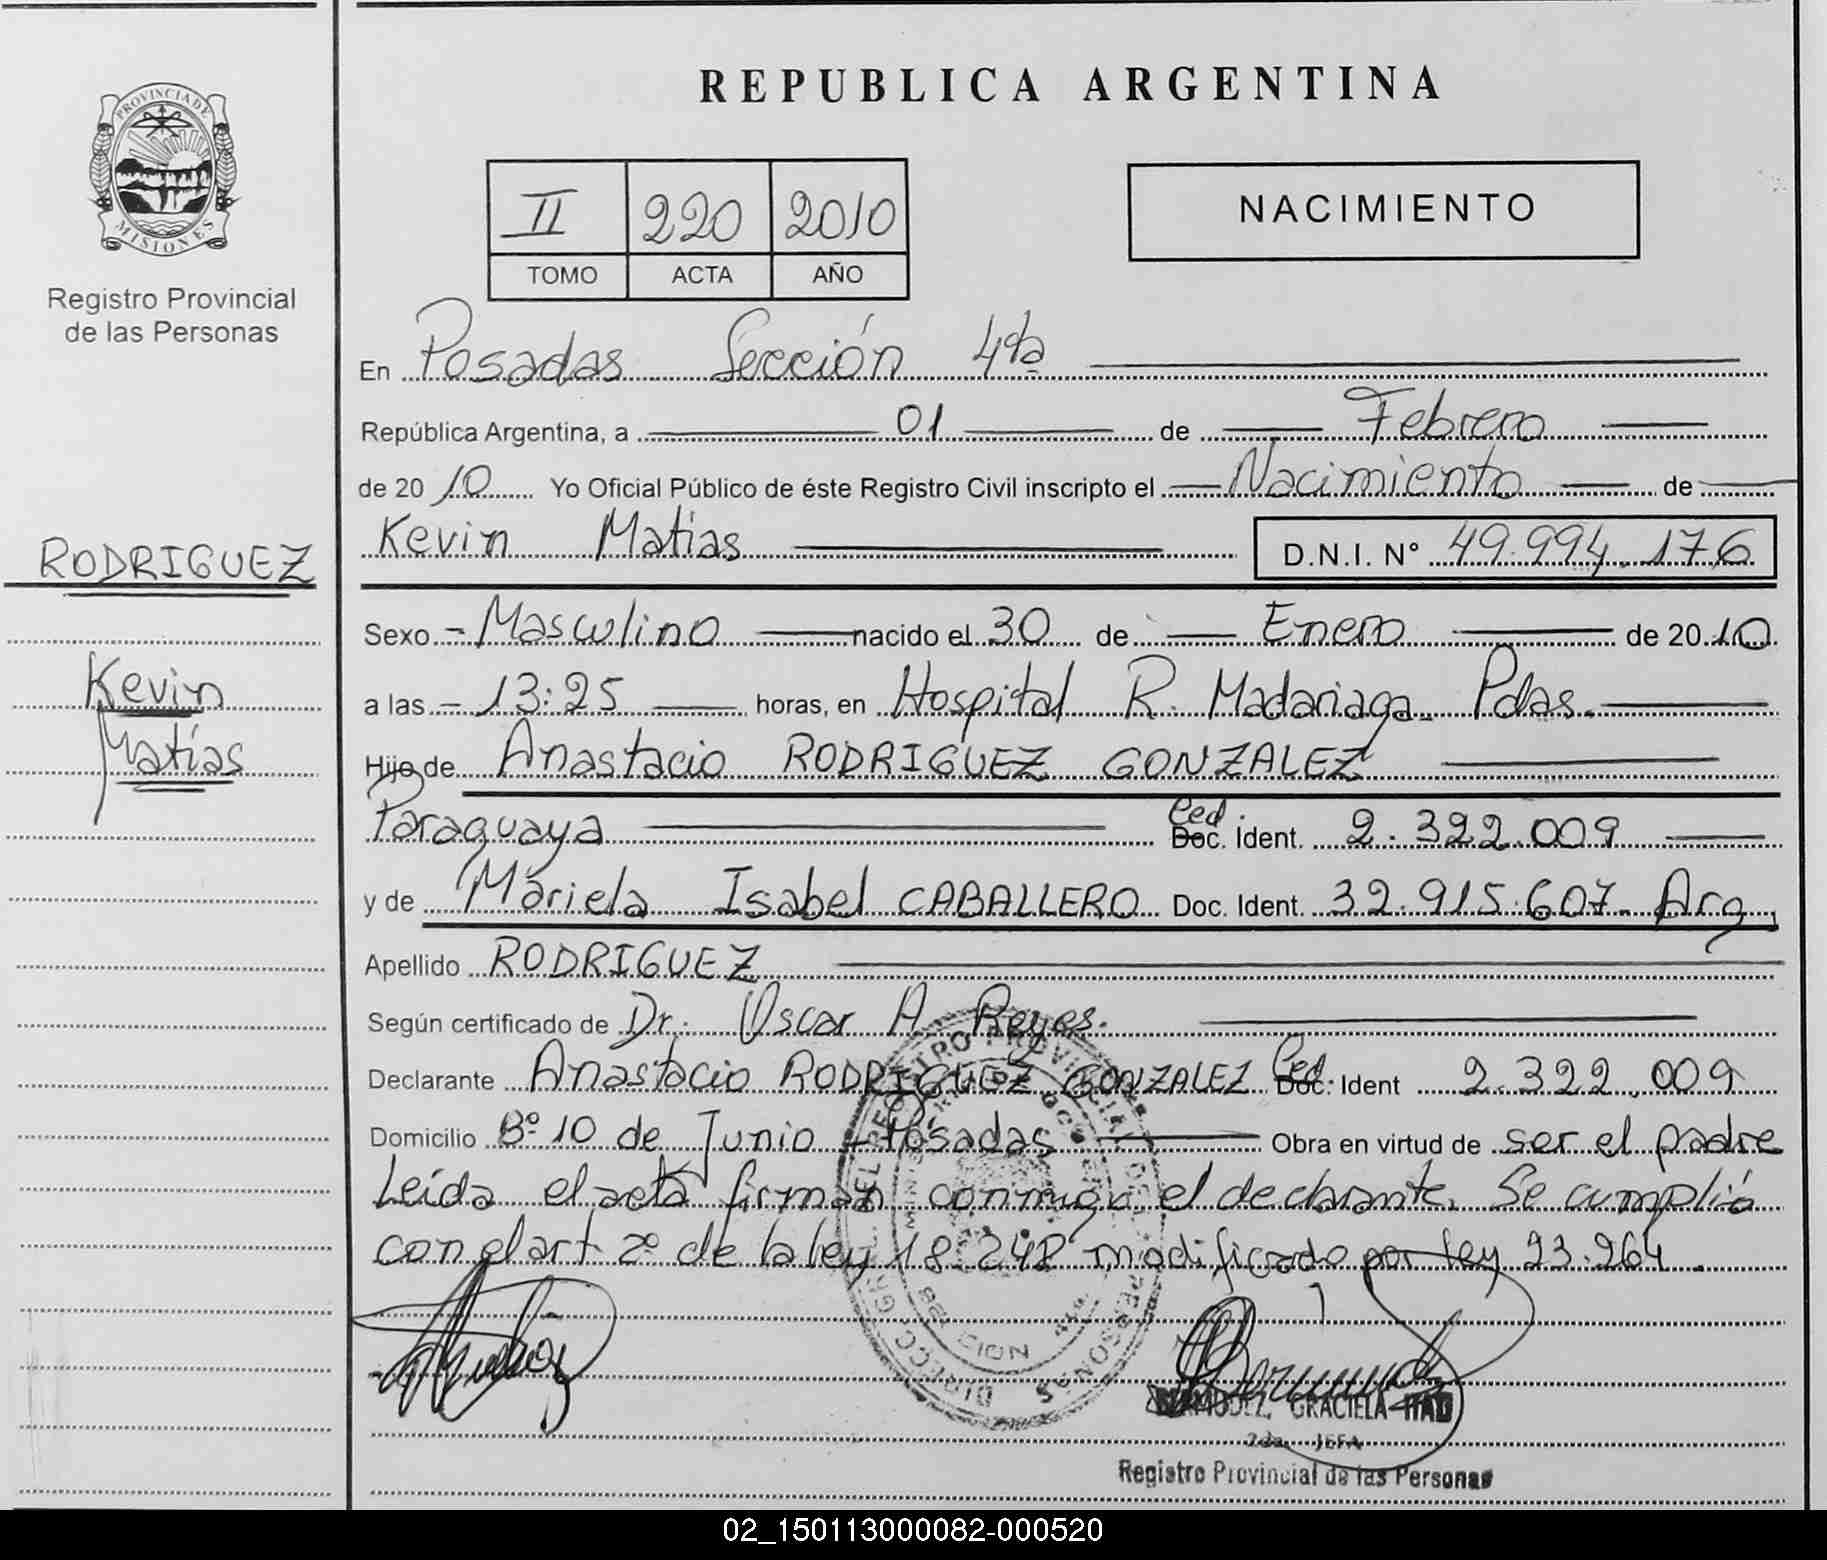 PROVINCIA DE
MISIONES
Registro Provincial
de las Personas
RODRIGUEZ
Kevin
Matías
REPUBLICA ARGENTINA
II 220 2010
TOMO ACTA AÑO
NACIMIENTO
En Posadas Sección 4ta
República Argentina, a 01 de Febrero
de 20 10 Yo Oficial Público de éste Registro Civil inscripto el Nacimiento de
Kevin Matias D.N.I. N° 49.994.176
Sexo - Masculino nacido el 30 de Enero de 20 10
a las - 13:25 horas, en Hospital R. Madariaga - Pdas.
Hijo de Anastacio RODRIGUEZ GONZALEZ
Paraguaya Ced. Doc. Ident. 2.322.009
y de Mariela Isabel CABALLERO Doc. Ident. 32.915.607 - Arg.
Apellido RODRIGUEZ
Según certificado de Dr. Oscar A. Reyes.
Declarante Anastacio RODRIGUEZ GONZALEZ Ced. Doc. Ident 2.322.009
Domicilio Bº 10 de Junio - Posadas Obra en virtud de ser el padre
Leída el acta firman conmigo el declarante. Se cumplió
con el art 2º de la ley 18.248 modificado por ley 23.264.
BERMUDEZ, GRACIELA
2da. JEFA
Registro Provincial de las Personas
02_150113000082-000520